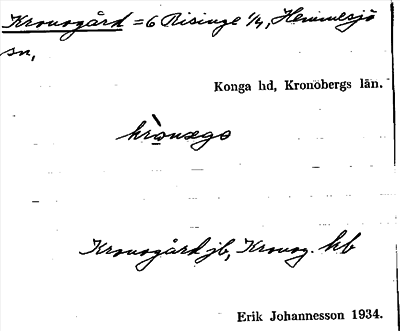 Kronogård = 6 Risinge 1/4, Hemmesjö
sn,
Konga hd, Kronobergs län.
Kronogård jb, Kronog. hb
Erik Johannesson 1934.